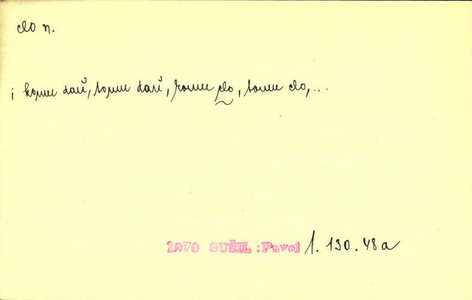 clo n.
i komu daň, tomu daň, komu clo, tomu clo,...
1870 SUŠIL :Pavel 1. 130.48a